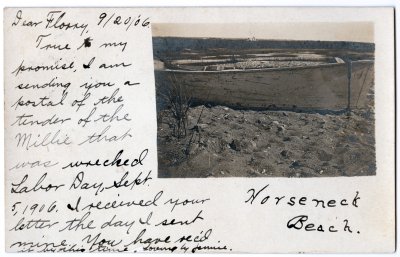 Dear Flossy, 9/20/06.
True to my
promise, I am
sending you a
postal of the
tender of the
Millie that
was wrecked
Labor Day, Sept.
5, 1906. I received your
letter the day I sent
mine. You have rec'd
it by this time. Lovingly Jennie.
Horseneck
Beach.